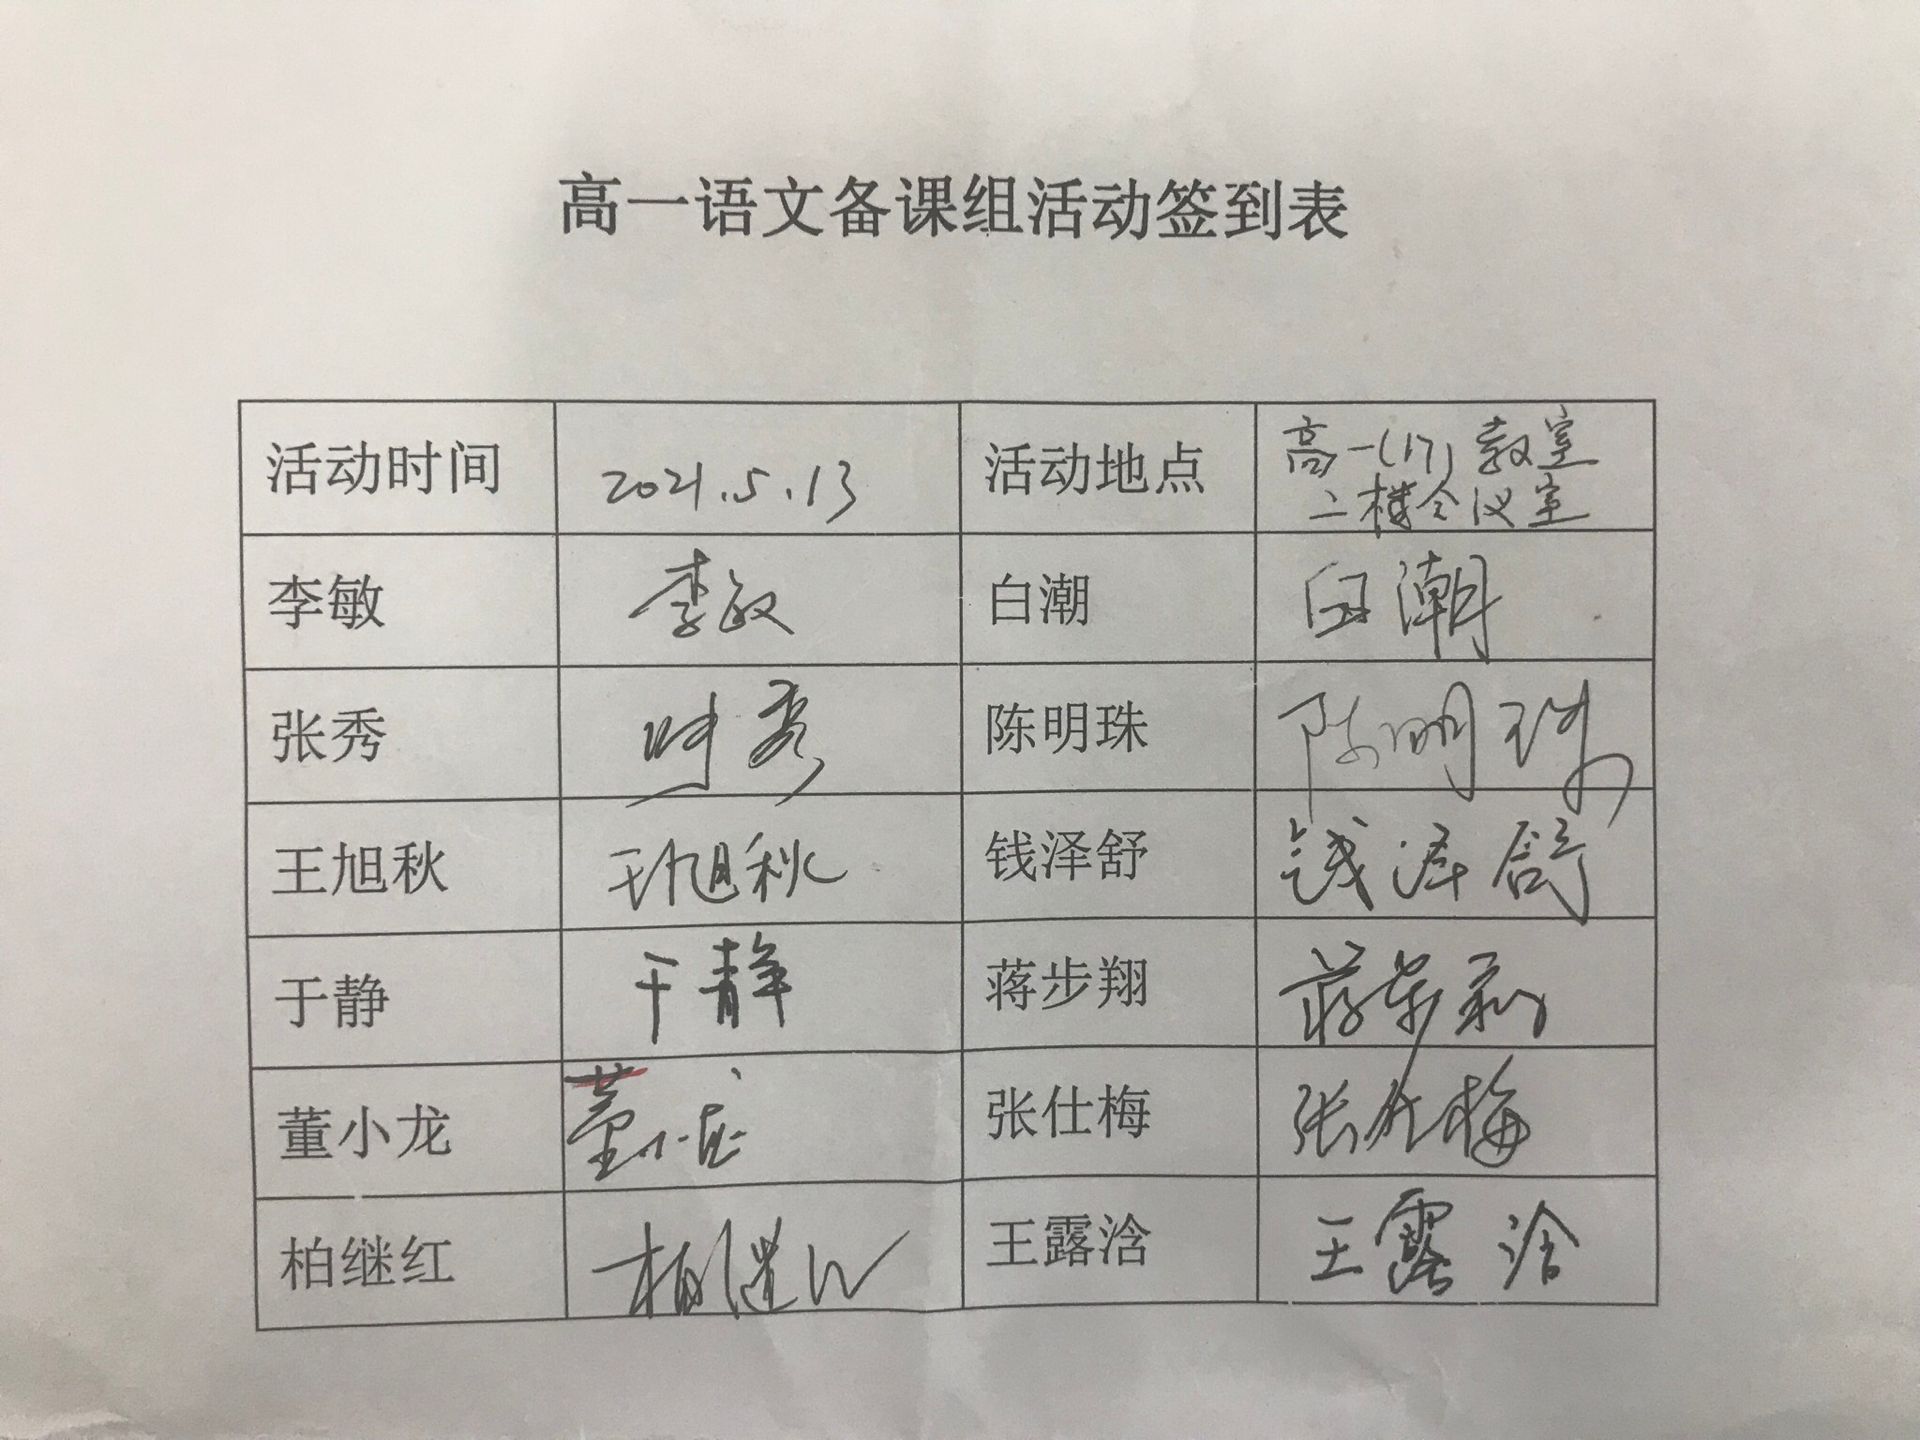 高一语文备课组活动签到表
活动时间 2021.5.13 活动地点 高一(17)教室
二楼会议室
李敏 李敏 白潮 白潮
张秀 张秀 陈明珠 陈明珠
王旭秋 王旭秋 钱泽舒 钱泽舒
于静 于静 蒋步翔 蒋步翔
董小龙 董小龙 张仕梅 张仕梅
柏继红 柏继红 王露浛 王露浛